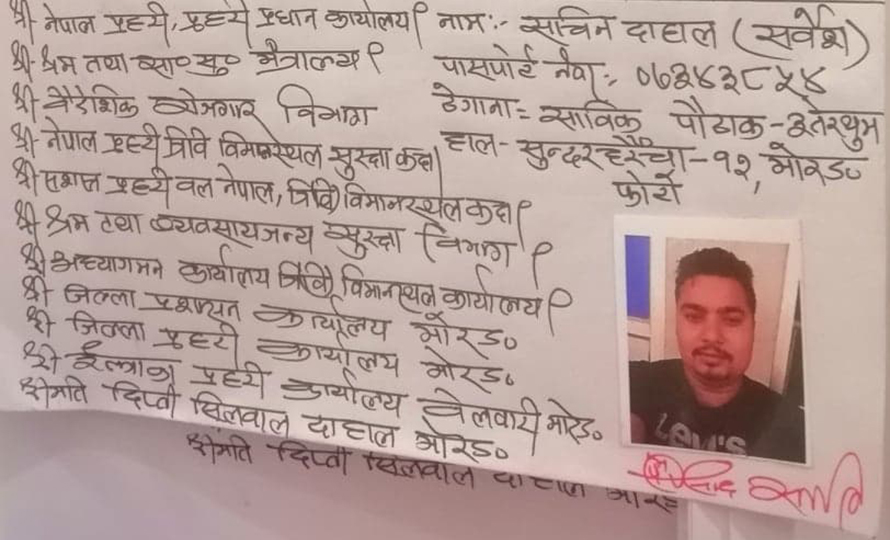 श्री नेपाल प्रहरी, प्रहरी प्रधान कार्यालय।
श्री श्रम तथा सा० सु० मंत्रालय।
श्री वैदेशिक रोजगार विभाग
श्री नेपाल प्रहरी त्रिवि विमानस्थल सुरक्षा कक्ष।
श्री सशस्त्र प्रहरी वल नेपाल, त्रिवि विमानस्थल कक्ष।
श्री श्रम तथा व्यवसायजन्य सुरक्षा विभाग।
श्री अध्यागमन कार्यालय त्रिवि विमानस्थल कार्यालय।
श्री जिल्ला प्रशासन कार्यालय मोरङ।
श्री जिल्ला प्रहरी कार्यालय मोरङ।
श्री ईलाका प्रहरी कार्यालय वेलवारी मोरङ।
श्रीमति दिप्ती सिलवाल दाहाल मोरङ।
श्रीमति दिप्ती सिलवाल दाहाल
नाम:- सचिन दाहाल (सर्वेश)
पासपोर्ट नं:, ०७३४३८५४
ठेगाना= साविक पौठाक-
हाल- सुन्दरहरैंचा-१२, मोरङ०
फोटो
LEVI'S